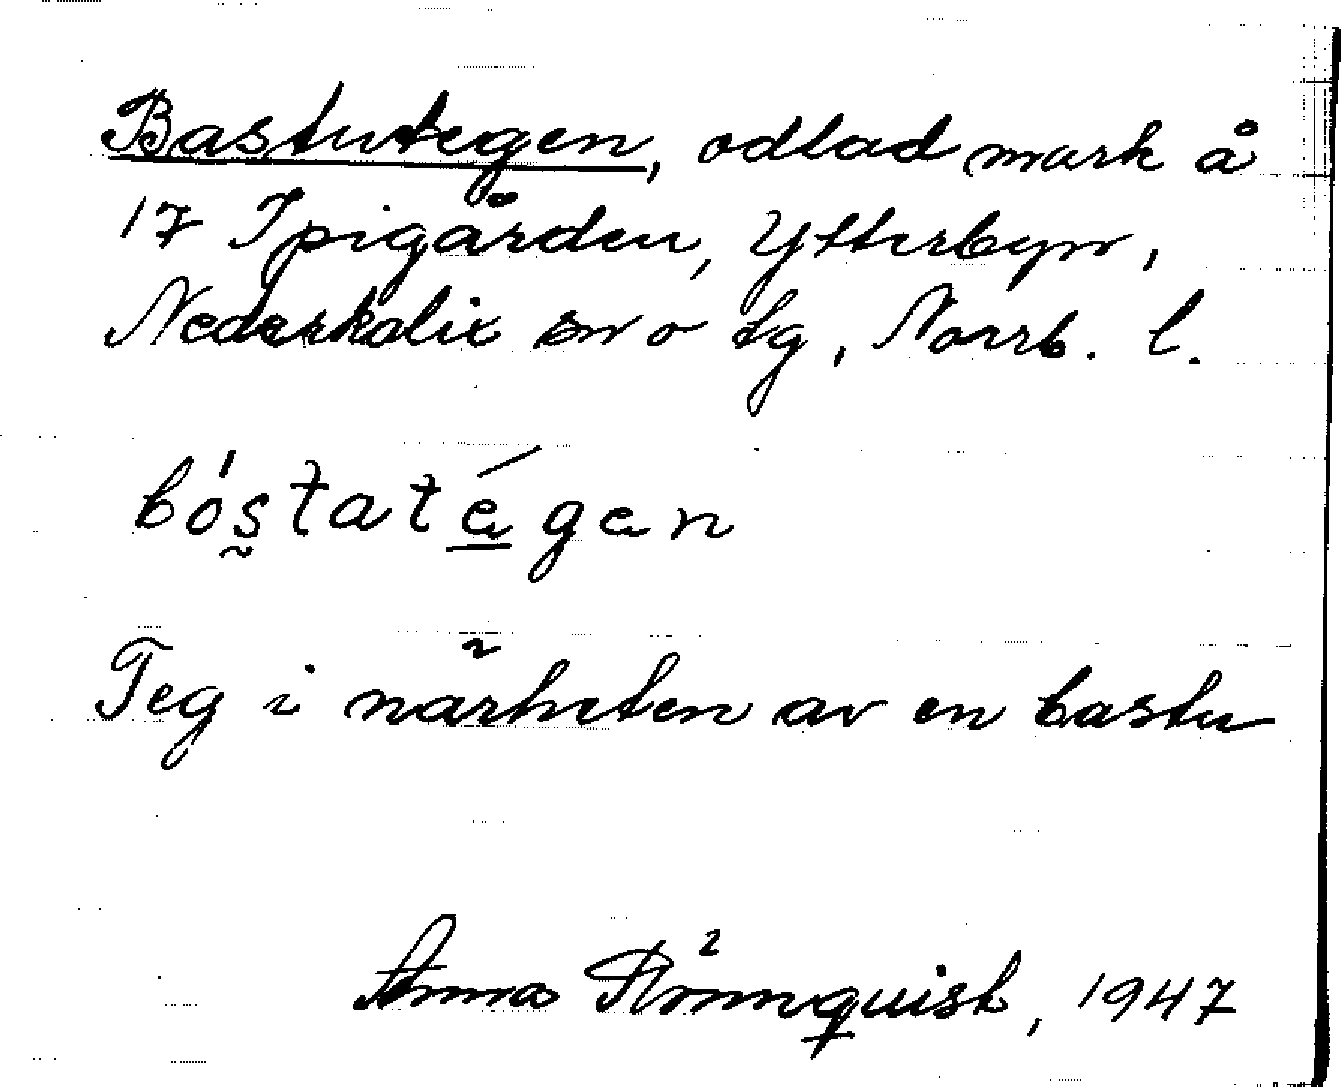 Bastutegen, odlad mark å
17 Spigården, Ytterbyn,
Nederkalix sn o tg, Norrb. l.
bóstatégen
Teg i närheten av en bastu
Anna Rönnquist, 1947